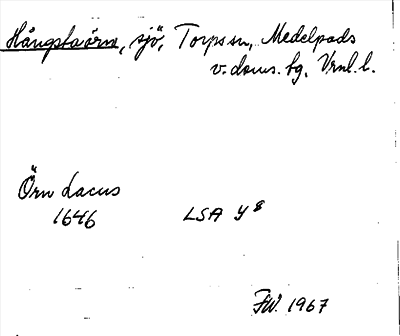 Hångstaörn, sjö, Torps sn, Medelpads
v. doms. fg. Vrnl. l.
Örn Lacus
1646 LSA Y 8
FW. 1967